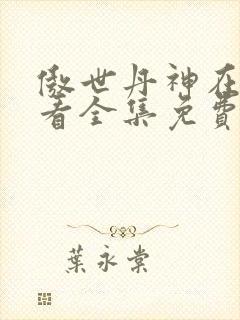 傲世丹神在
看全集免費
葉永棠